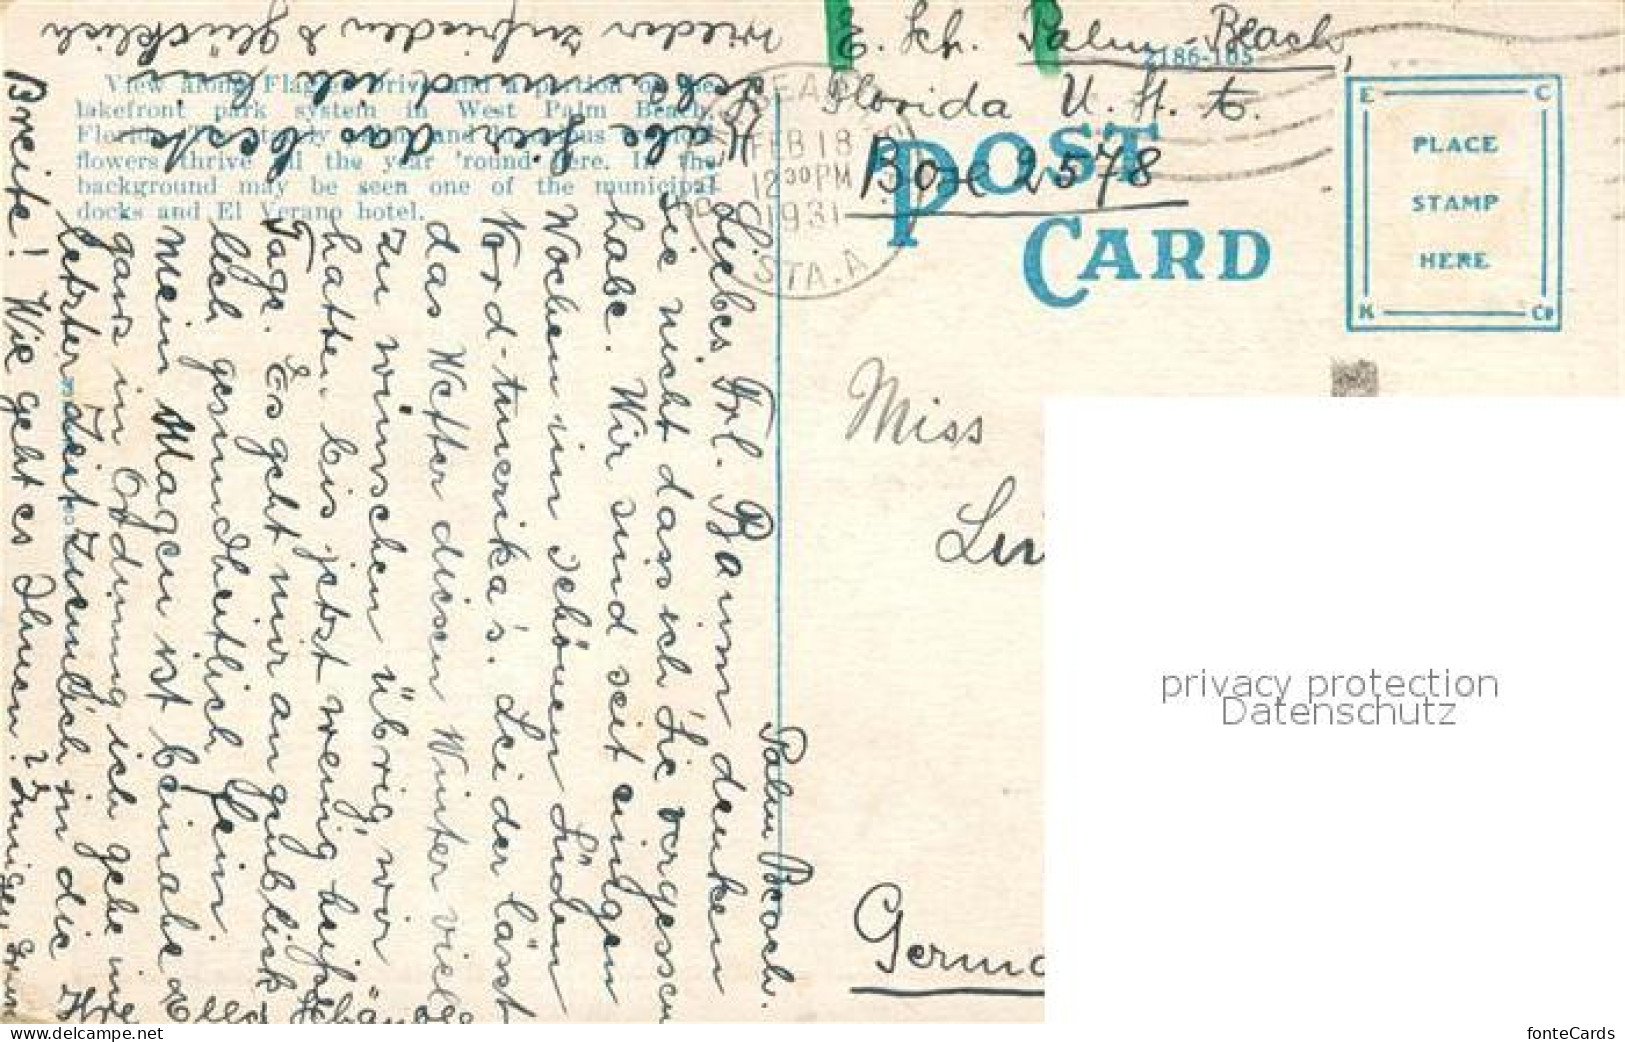 E. Sch. Palm-Beach,
Florida U. St. A.
Box 2578
2186-105
View along Flagler Drive and a portion of the
lakefront park system in West Palm Beach,
Florida.
flowers thrive all the year 'round here. In the
background may be seen one of the municipal
docks and El Verano hotel.
FEB 18
12 30 PM
1931
STA. A
POST
CARD
E C
PLACE
STAMP
HERE
K Co
Miss
Germ
Palm Beach.
Liebes Frl. Baum denken
Sie nicht dass ich Sie vergessen
habe. Wir sind seit einigen
Wochen im schönen Süden
Nord-Amerika's. Leider lässt
das Wetter diesen Winter viel
zu wünschen übrig, wir
hatten bis jetzt wenig heisse
Tage. Es geht mir augenblick
lich gesundheitlich fein
Mein Magen ist beinahe
ganz in Ordnung ich gehe in
letzter Zeit ziemlich in die
Breite! Wie geht es Ihnen?
Ich
habe hier das beste
wieder zufrieden & glücklich
Ihre Ella
privacy protection
Datenschutz
www.delcampe.net
fonteCards